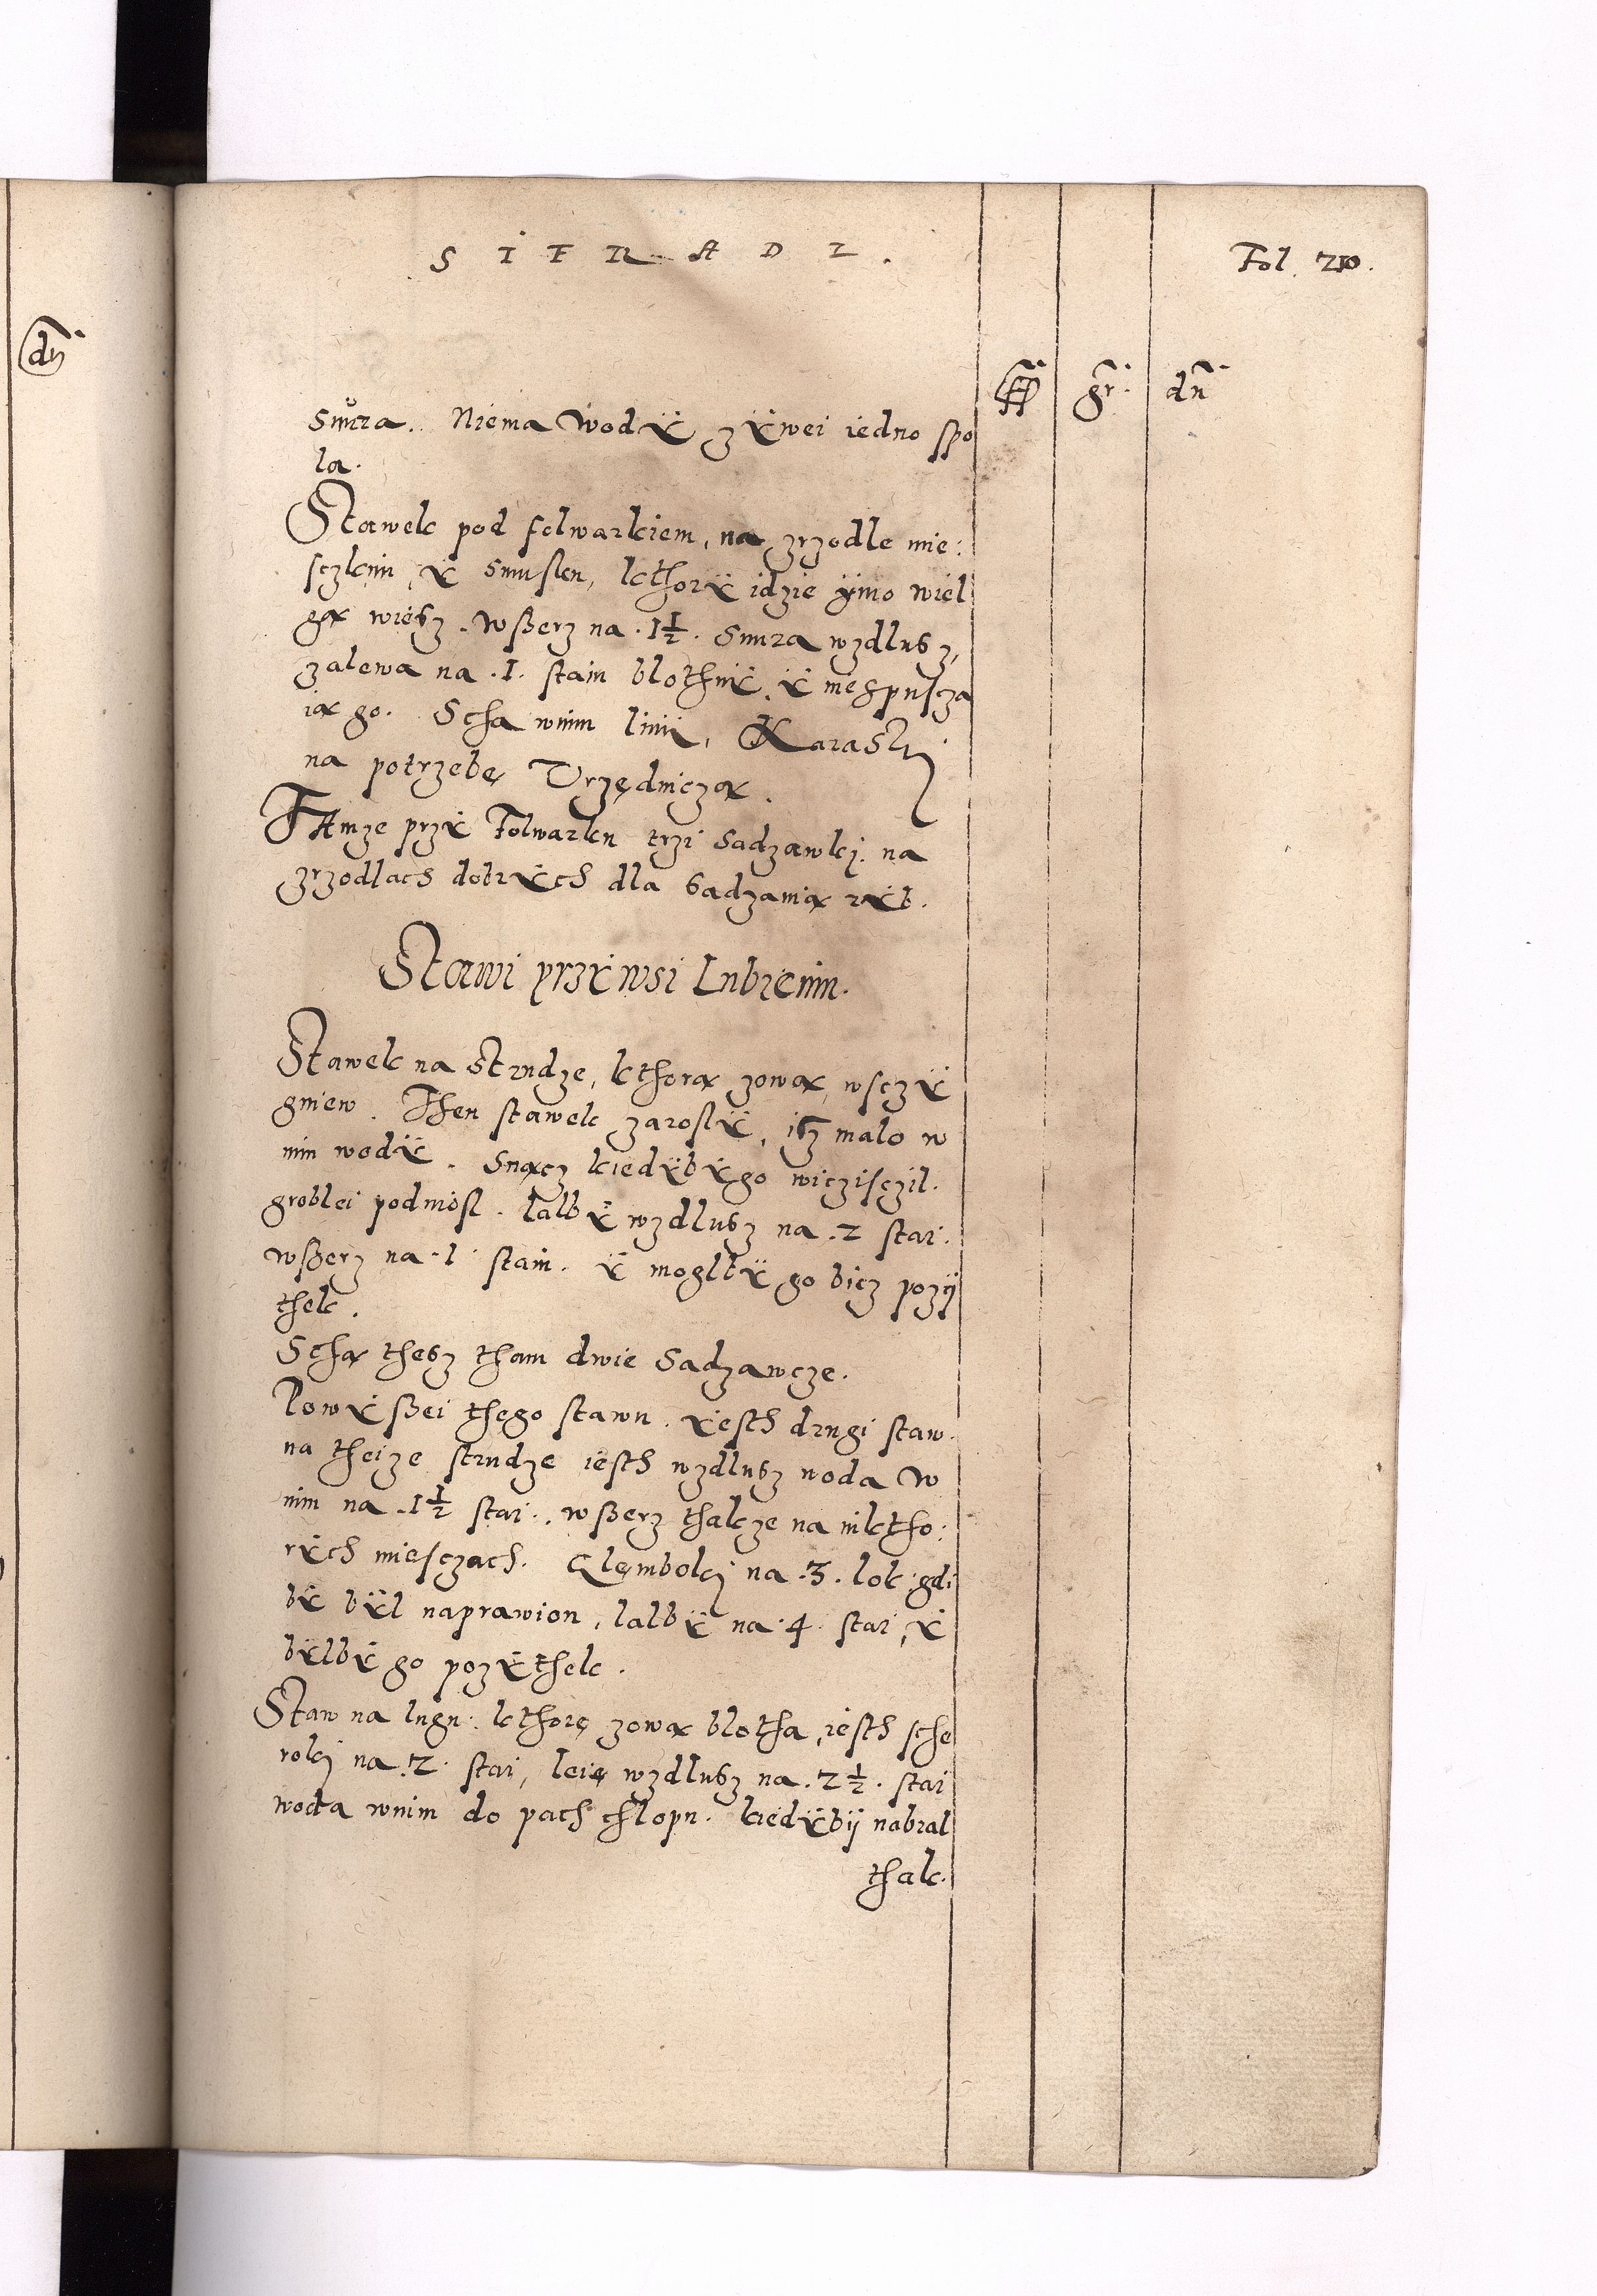 SIERADZ.
Fol. 210.
dn
fl gr. dn
Snura. Niema wodÿ zÿwei iedno spo
la.
Stawek pod folwarkiem, na zrzodle mie:
sczkim, ÿ Smuslen, kthorÿ idzie ÿmo wiel
gą wieſz. Wßerz na .1½. Snura wzdluſz,
zalewa na .1. stain blothnÿ, ÿ niespuscza
ią go. Scha wnim linÿ, Karasÿ
na potrzebę Vrzędniczą.
TAmze przÿ Folwarku trzi sadzawki na
zrzodlach dobrÿch dla sadzanią rÿb.
Stawi przÿ wsi Lubzenin.
Stawek na Strudze, kthorą zową, wsczÿ
gniew. Then stawek zaroslÿ, iſz malo w
nim wodÿ. Snącz kiedÿbÿ go wicziſczil.
groblei podniosl. lalbÿ wzdluſz na .2 stai.
wßerz na .1. stain. ÿ moglbÿ go bicz pozÿ
thek.
Schą theſz tham dwie Sadzawcze.
Powÿßei thego stawu. ÿesth drugi staw.
na theize strudze iesth wzdluſz woda w
nim na .1½ stai., wßerz thakze na niktho:
rÿch miesczach. Glęmboki na .3. lok: gdi
bÿ bÿl naprawion, lalbÿ na .4. stai, ÿ
bÿlbÿ go pozÿthek.
Staw na lugu: kthorę zową blotha, iesth sche
roki na .2. stai, leię wzdluſz na .2½. stai
woda wnim do pach chlopu. kiedÿbÿ nabral
thak.